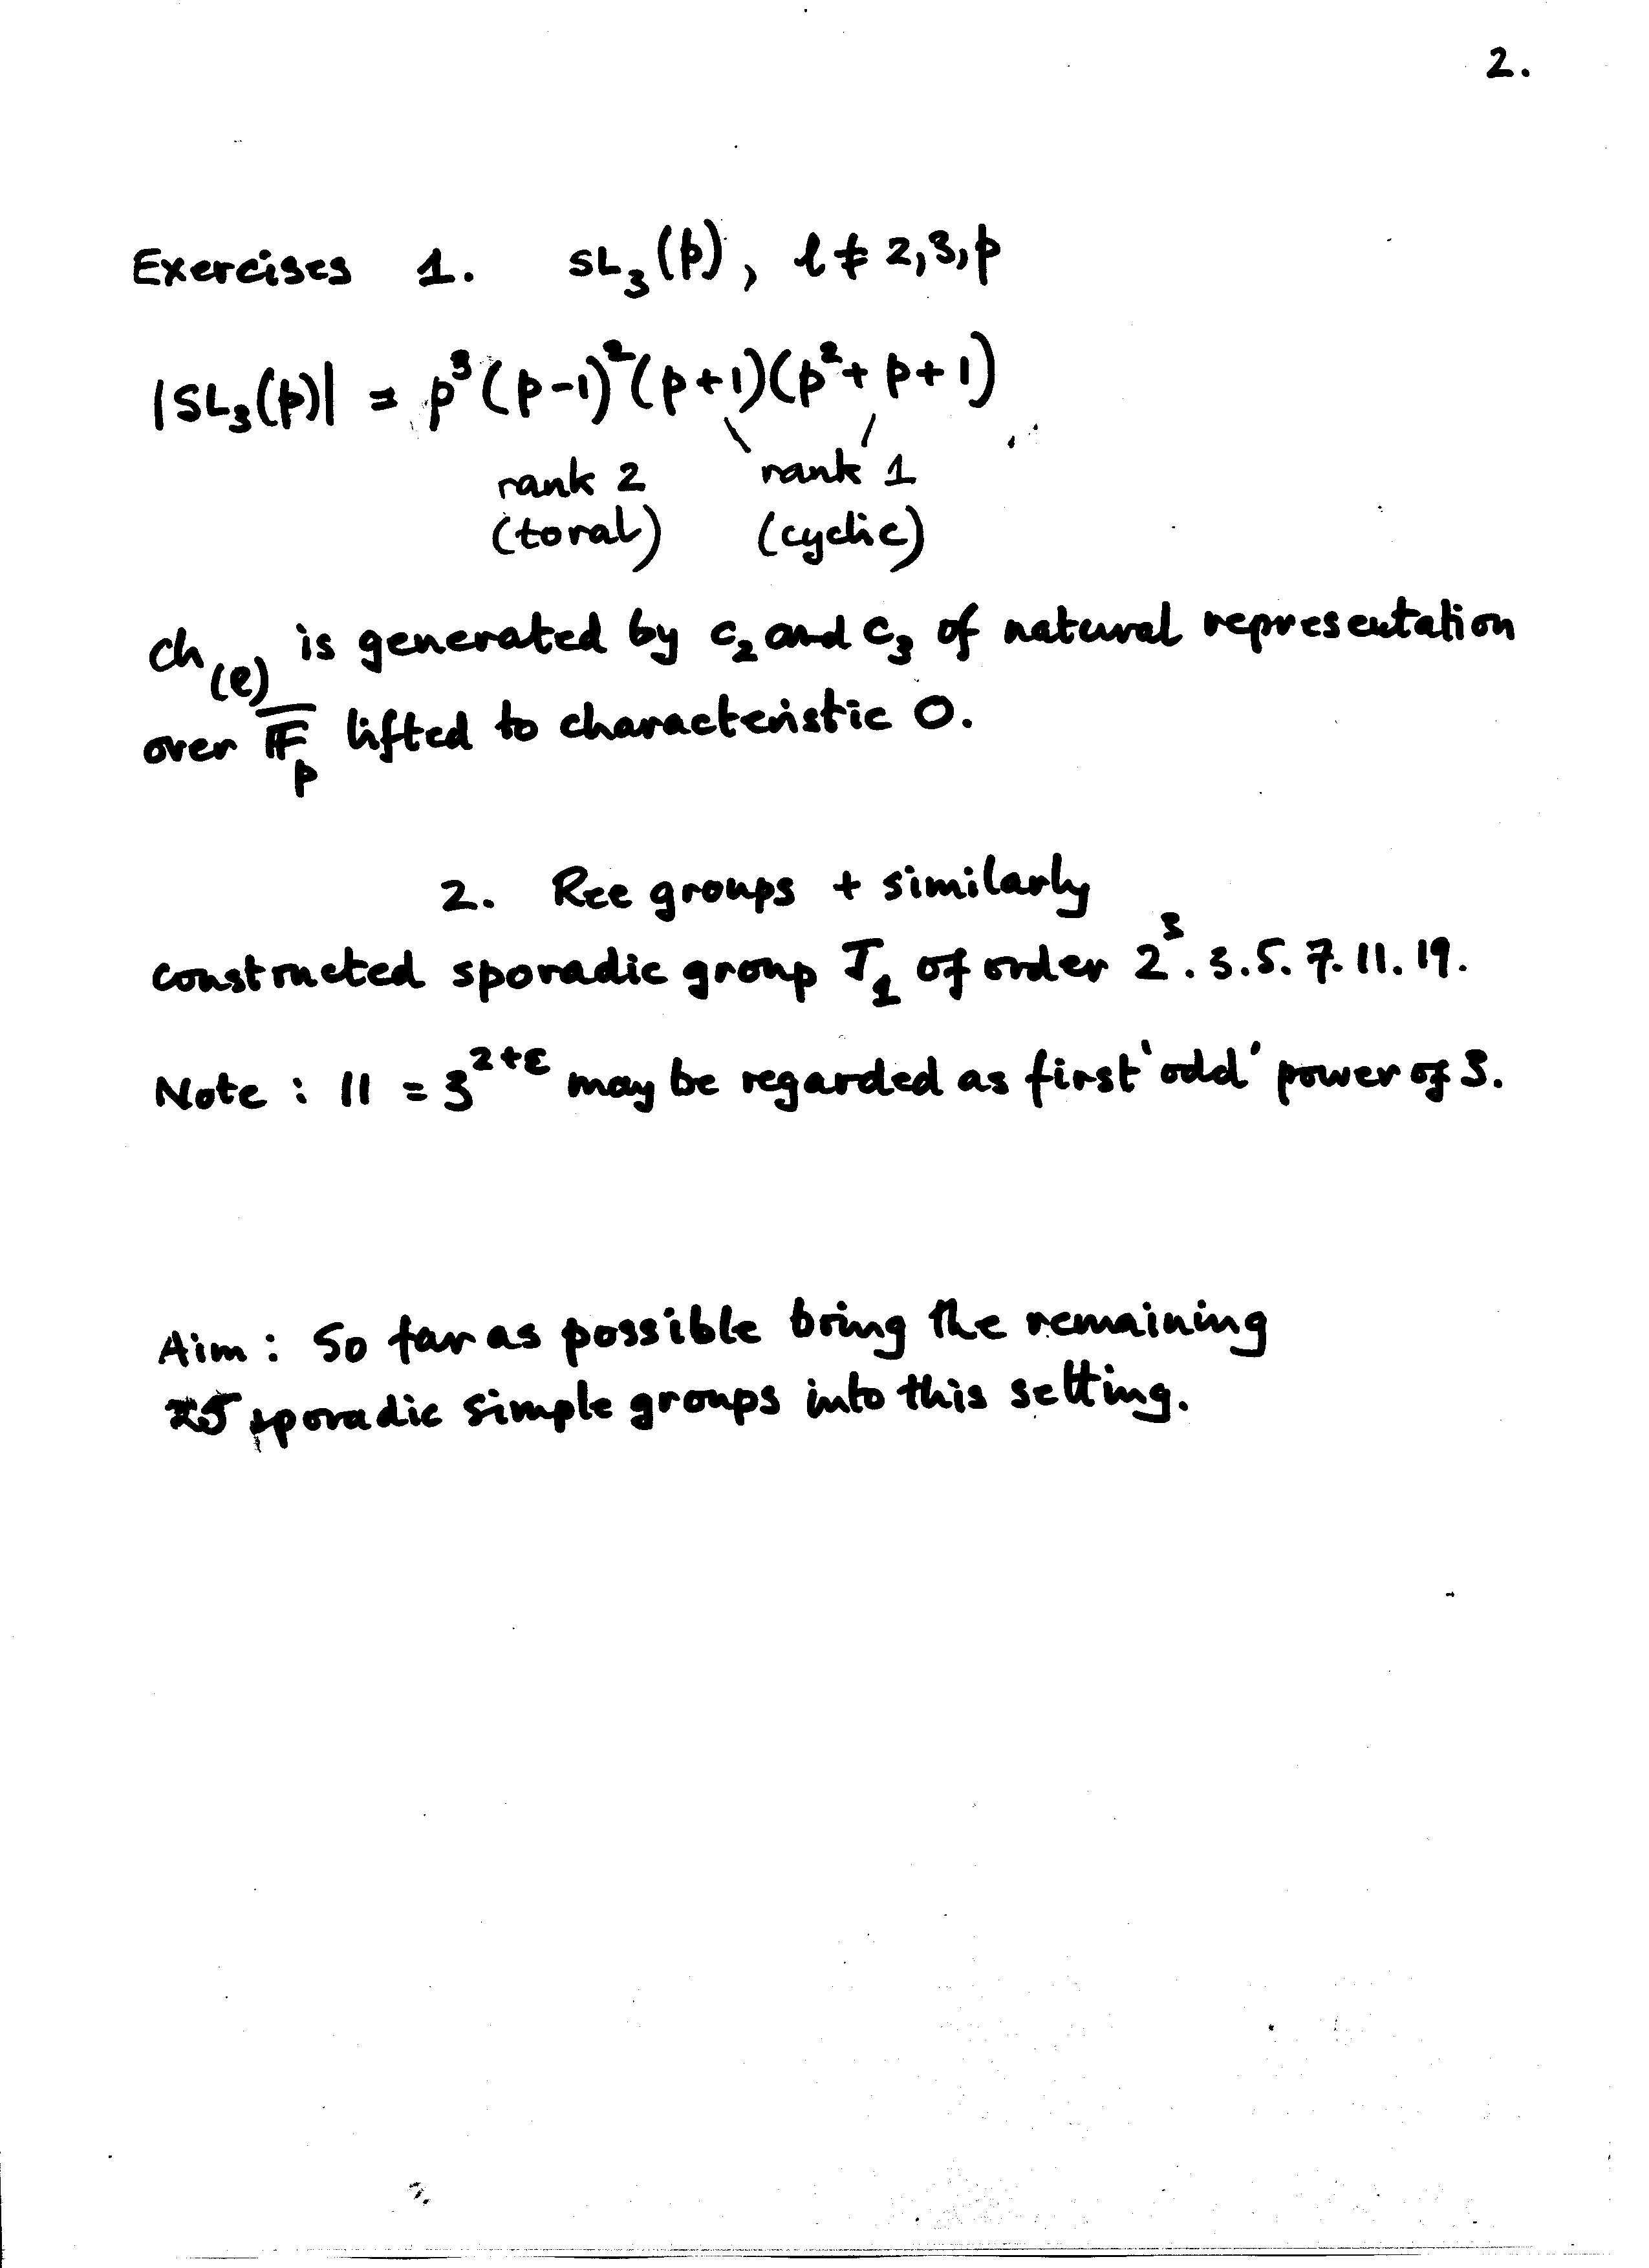 2.
Exercises 1. SL₃(p), l ≠ 2,3,p
|SL₃(p)| = p³(p-1)²(p+1)(p²+p+1)
rank 2 rank 1
(toral) (cyclic)
Ch₍ₗ₎ is generated by c₂ and c₃ of natural representation
over F̅ₚ lifted to characteristic 0.
2. Ree groups + similarly
constructed sporadic group J₁ of order 2³.3.5.7.11.19.
Note : 11 = 3²⁺ᵋ may be regarded as first 'odd' power of 3.
Aim : So far as possible bring the remaining
25 sporadic simple groups into this setting.